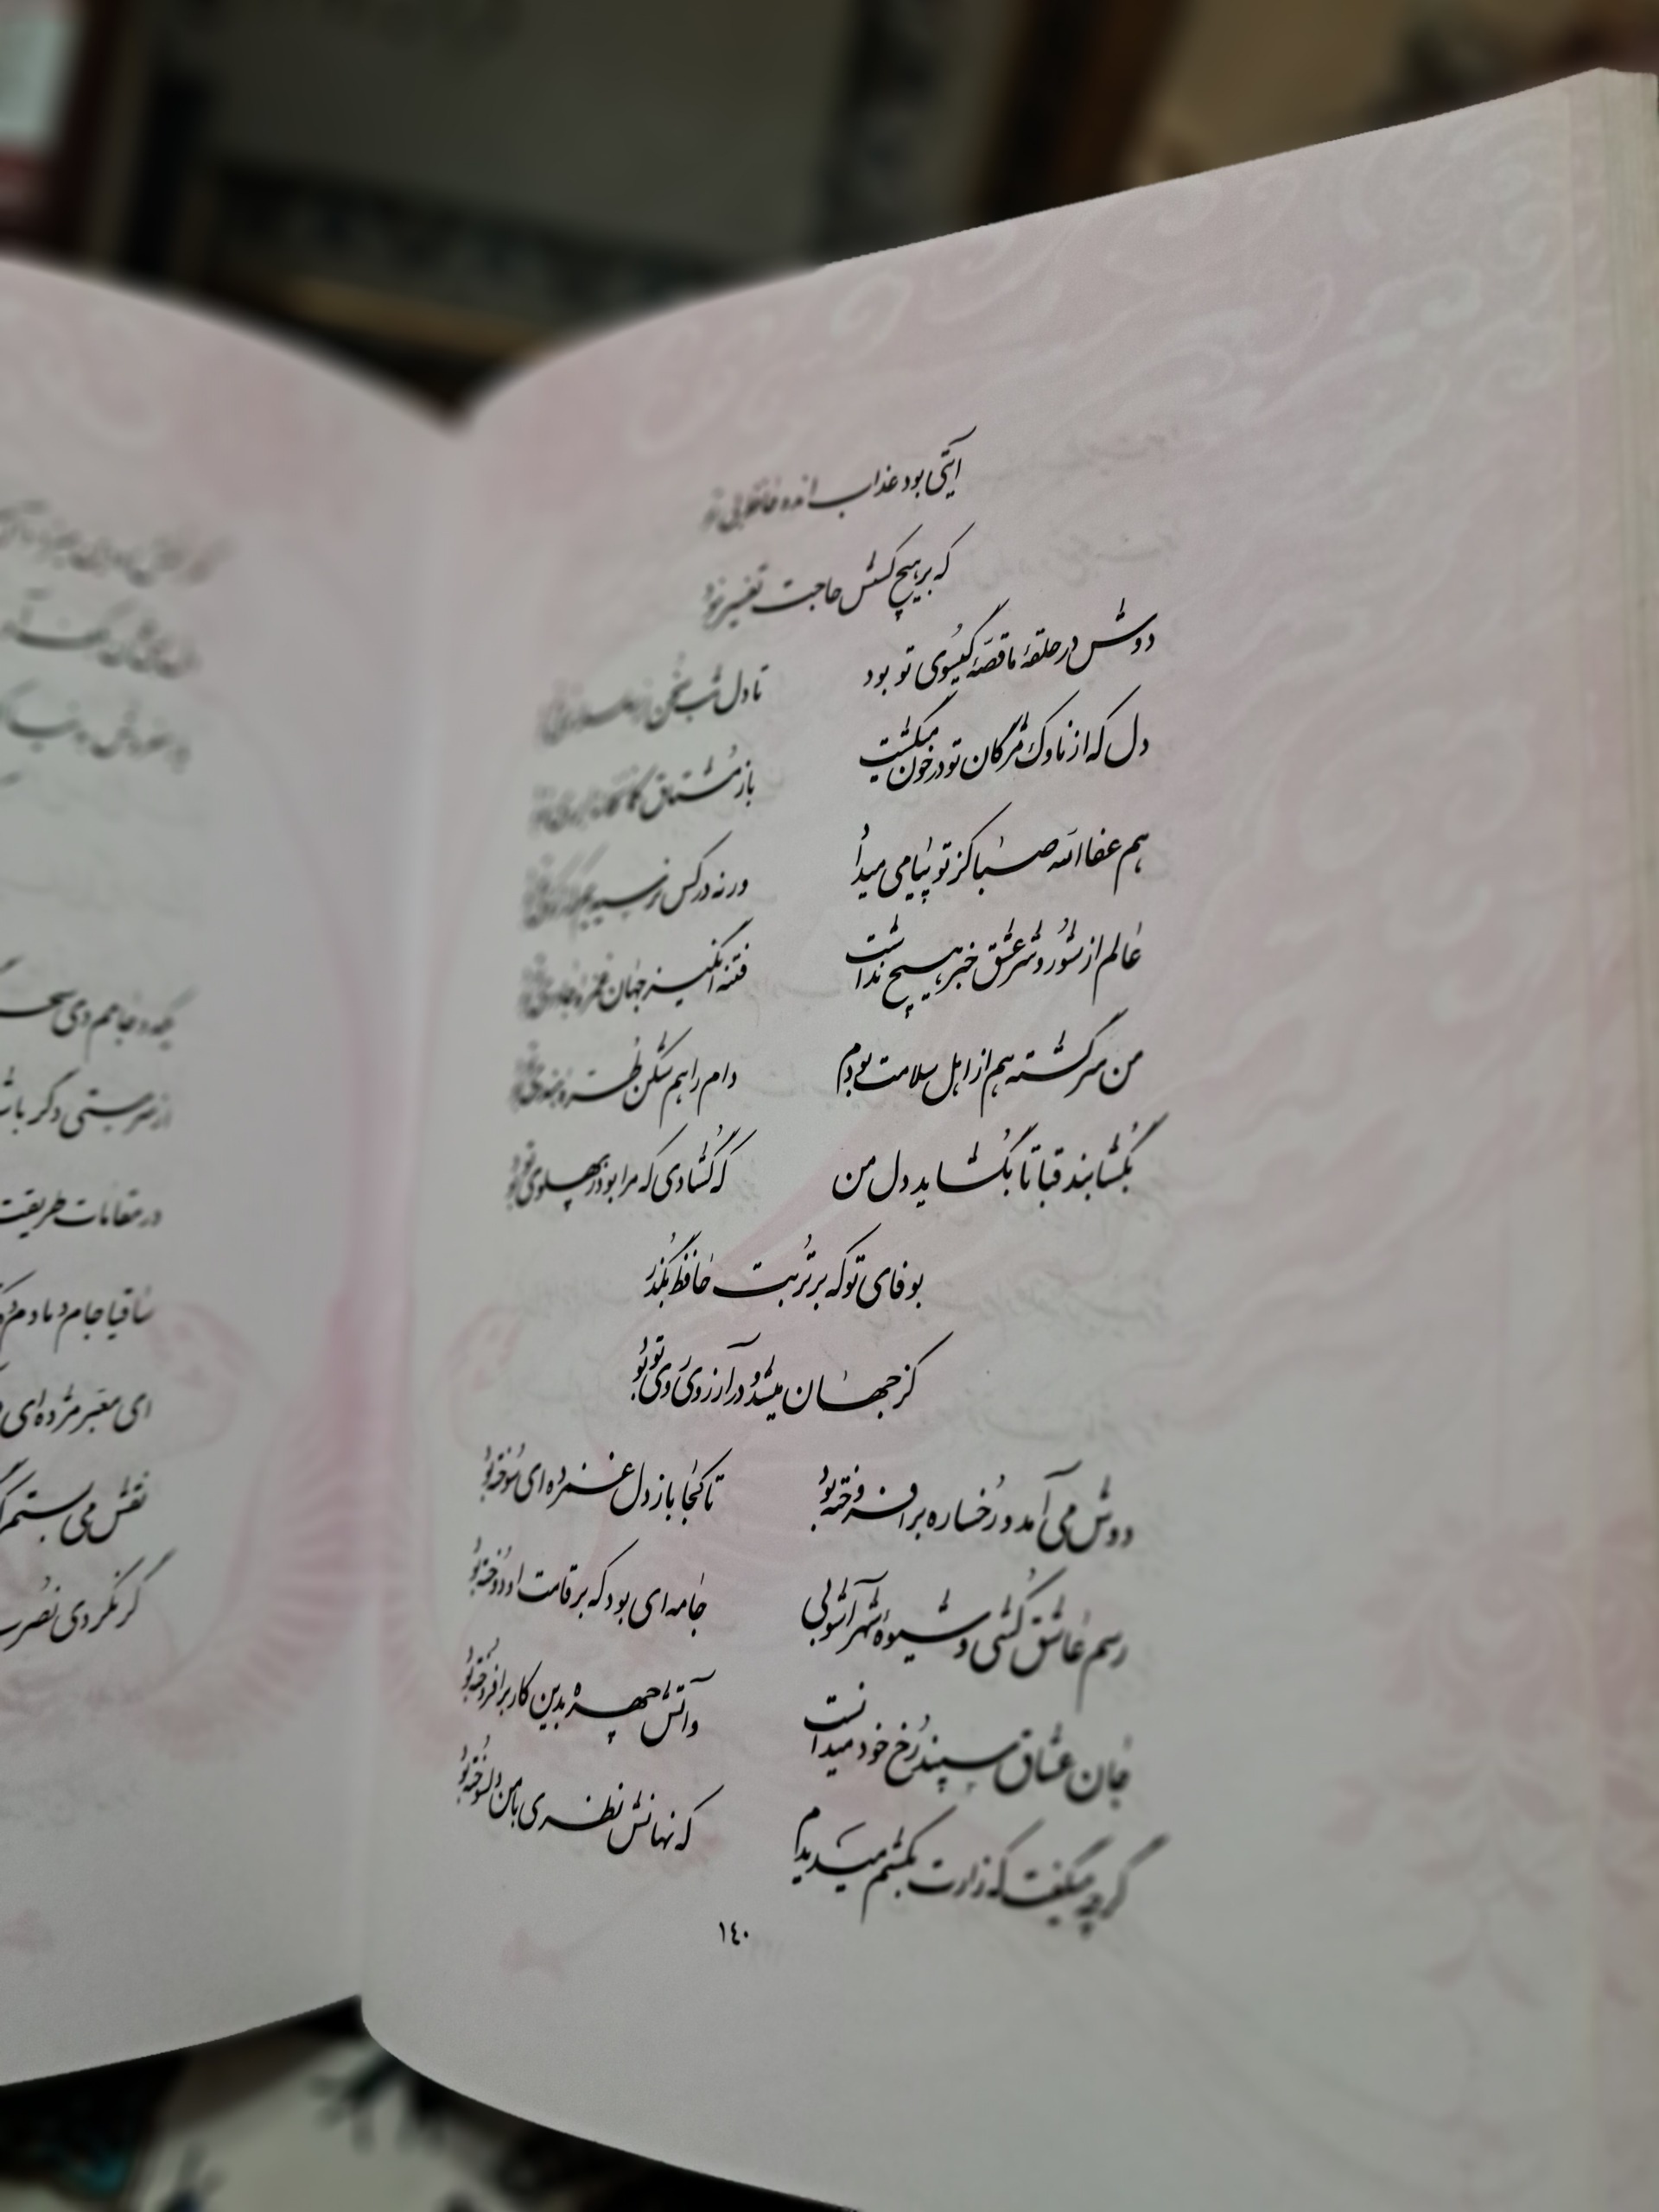 آیتی بود عذاب انده حافظ بی تو
که بر هیچ کسش حاجت تفسیر نبود
دوش در حلقهٔ ما قصّهٔ گیسوی تو بود تا دل شب سخن از سلسلهٔ موی تو بود
دل که از ناوک مژگان تو در خون میگشت باز مشتاق کمانخانهٔ ابروی تو بود
هم عفااللّه صبا کز تو پیامی میداد ورنه در کس نرسیدیم که از کوی تو بود
عالم از شور و شر عشق خبر هیچ نداشت فتنه انگیز جهان غمزهٔ جادوی تو بود
من سرگشته هم از اهل سلامت بودم دام راهم شکن طرّهٔ هندوی تو بود
بگشا بند قبا تا بگشاید دل من که گشادی که مرا بود ز پهلوی تو بود
بوفای تو که بر تربت حافظ بگذر
کز جهان میشد و در آرزوی روی تو بود
دوش می آمد و رخساره برافروخته بود تا کجا باز دل غمزده ای سوخته بود
رسم عاشق کشی و شیوهٔ شهر آشوبی جامه ای بود که بر قامت او دوخته بود
جان عشاق سپند رخ خود میدانست وآتش چهره بدین کار برافروخته بود
گرچه میگفت که زارت بکشم میدیدم که نهانش نظری با من دلسوخته بود
١٤٠
در مقامات طریقت
ساقیا جام دمادم
ای معبر مژده ای
نقش می بستم
گر نکردی نصرت